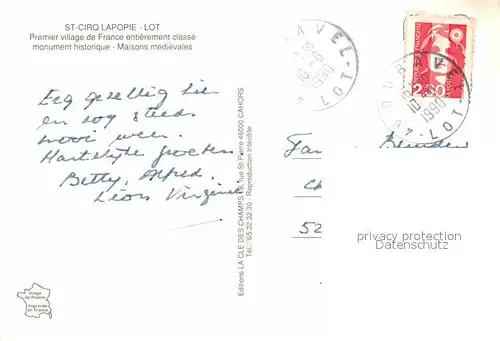 ST-CIRQ LAPOPIE - LOT
Premier village de France entièrement classé
monument historique - Maisons médiévales
Erg gezellig hier
en nog steeds
mooi weer.
Hartelyke groeten
Betty, Alfred.
Léon Virginie
Editions LA CLE DES CHAMPS
St-Pierre 46000 CAHORS
Tél. 65.22.32.30 - Reproduction interdite
Image
de France
Imprimée
en France
LOT
1990
REPUBLIQUE FRANÇAISE
2,30
1990
LOT
Fam
Reinders
52
privacy protection
Datenschutz